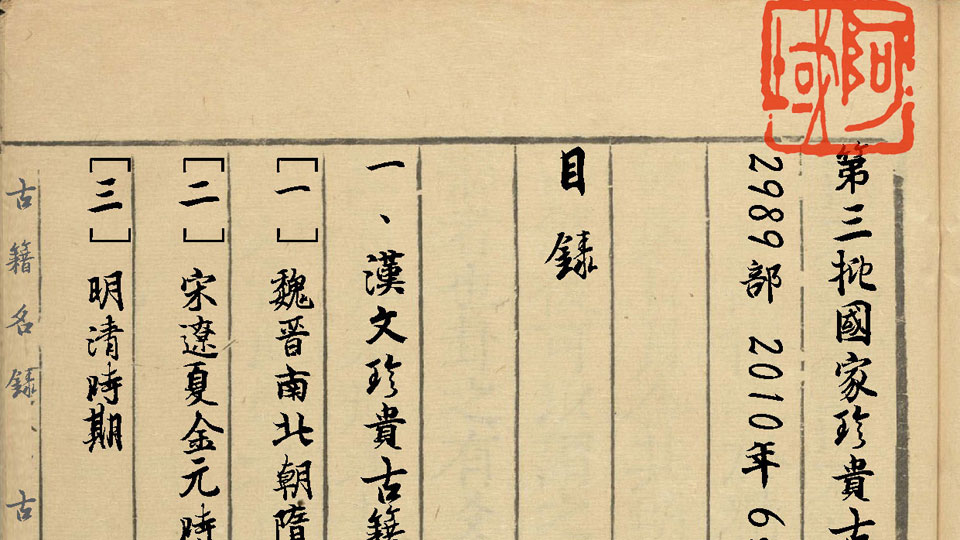 阿域
第三批國家珍貴古
2989部 2010年 6
目錄
一、漢文珍貴古籍
[一] 魏晋南北朝隋
[二] 宋遼夏金元時
[三] 明清時期
古籍名錄、古